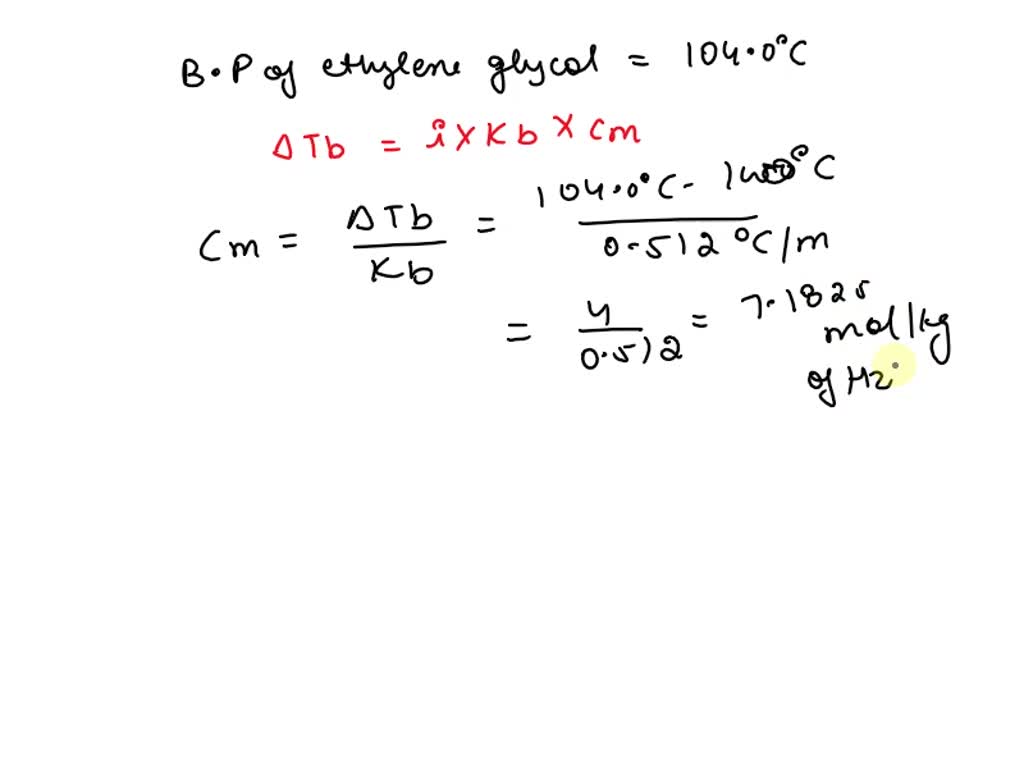 B.P of ethylene glycol = 104.0°C
ΔTb = i x Kb x Cm
Cm = ΔTb / Kb = 104.0°C - °C / 0.512 °C/m
= 4 / 0.512 = 7.1825 mol/kg
of H2